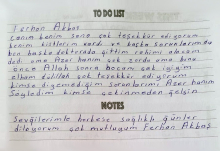 TO DO LIST
Ferhan Akbaş
canım benim sene çok teşekkür ediyorum
benim kistlerim vardı ve başka sorunlarımda
ben başka doktorada gittim rahimi alacam
dedi ama Azer hanım çok zorda ama bana
önce Allah sonra hocam çok iyiyim
elham dülillah çok teşekkür ediyorum
kimse diyemediğim sorunlarımı Azer hanım
Söyledim kimse çekinmeden gelsin
NOTES
Sevgilerimle herkese sağlıklı günler
diliyorum çok mutluyum Ferhan Akbaş